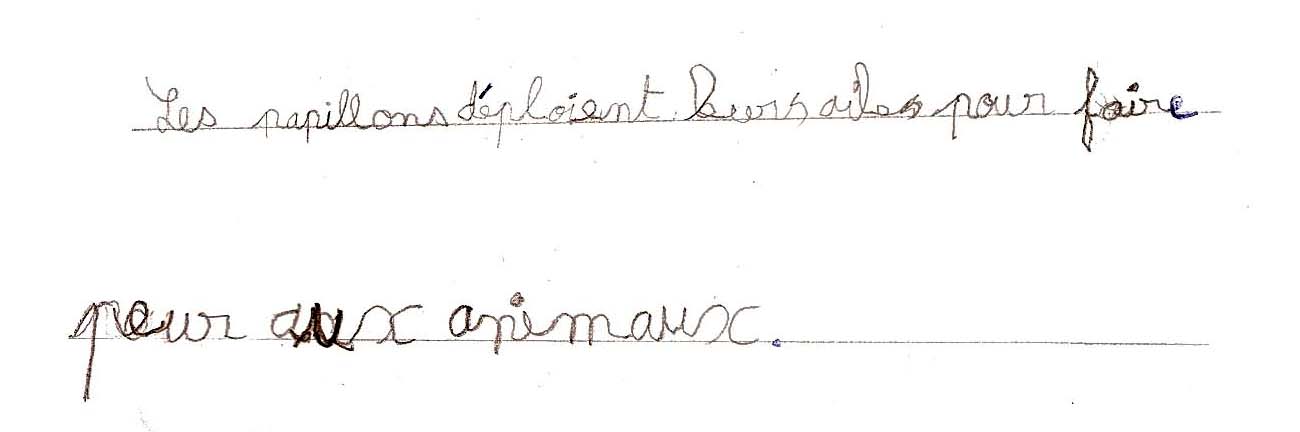 Les papillons déploient leurs ailes pour faire
peur aux animaux.